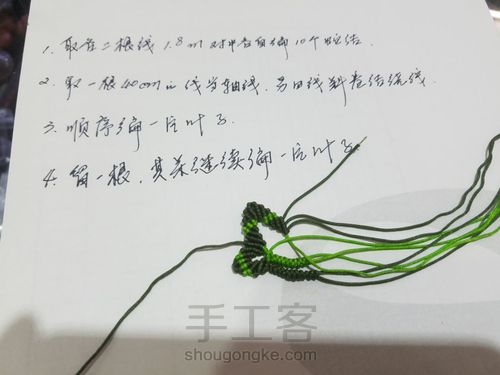 1. 取在二根线1.8m对中各自编10个蛇结.
2. 取一根40cm的线当轴线,另田线斜卷结绕线.
3. 顺序编一片叶子
4. 留一根,其余继续编一片叶子
手工客
shougongke.com